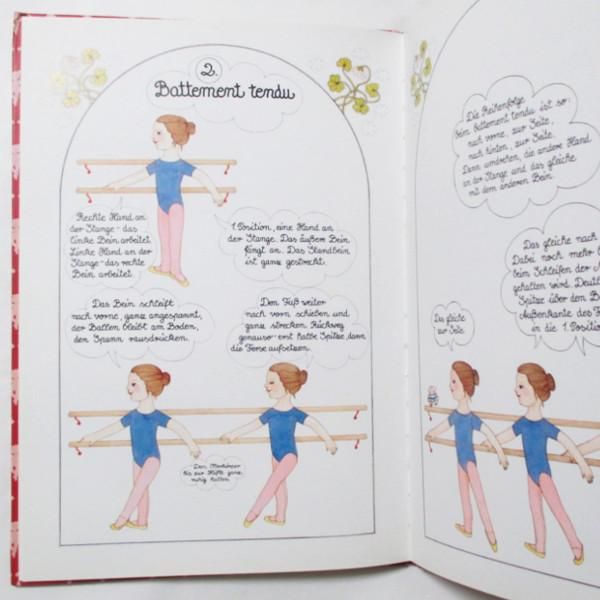 2.
Battement tendu
Rechte Hand an
der Stange - das
linke Bein arbeitet.
Linke Hand an der
Stange - das rechte
Bein arbeitet.
1. Position, eine Hand an
der Stange. Das äußere Bein
fängt an. Das Standbein
ist ganz gestreckt.
Das Bein schleift
nach vorne, ganz angespannt,
der Ballen bleibt am Boden,
den Spann rausdrücken.
Den Fuß weiter
nach vorn schieben und
ganz strecken. Rückweg
genauso - erst halbe Spitze, dann
die Ferse aufsetzen.
Den Oberkörper
bis zur Hüfte ganz
ruhig halten.
Die Reihenfolge
beim battement tendu ist so:
nach vorne, zur Seite,
nach hinten, zur Seite.
Dann umdrehen, die andere Hand
an der Stange und das gleiche
mit dem anderen Bein.
Das gleiche
zur Seite.
Das gleiche nach
Dabei noch mehr
beim Schleifen der
gehalten wird. Deutl
Spitze über den B
Außenkante des F
in die 1. Position